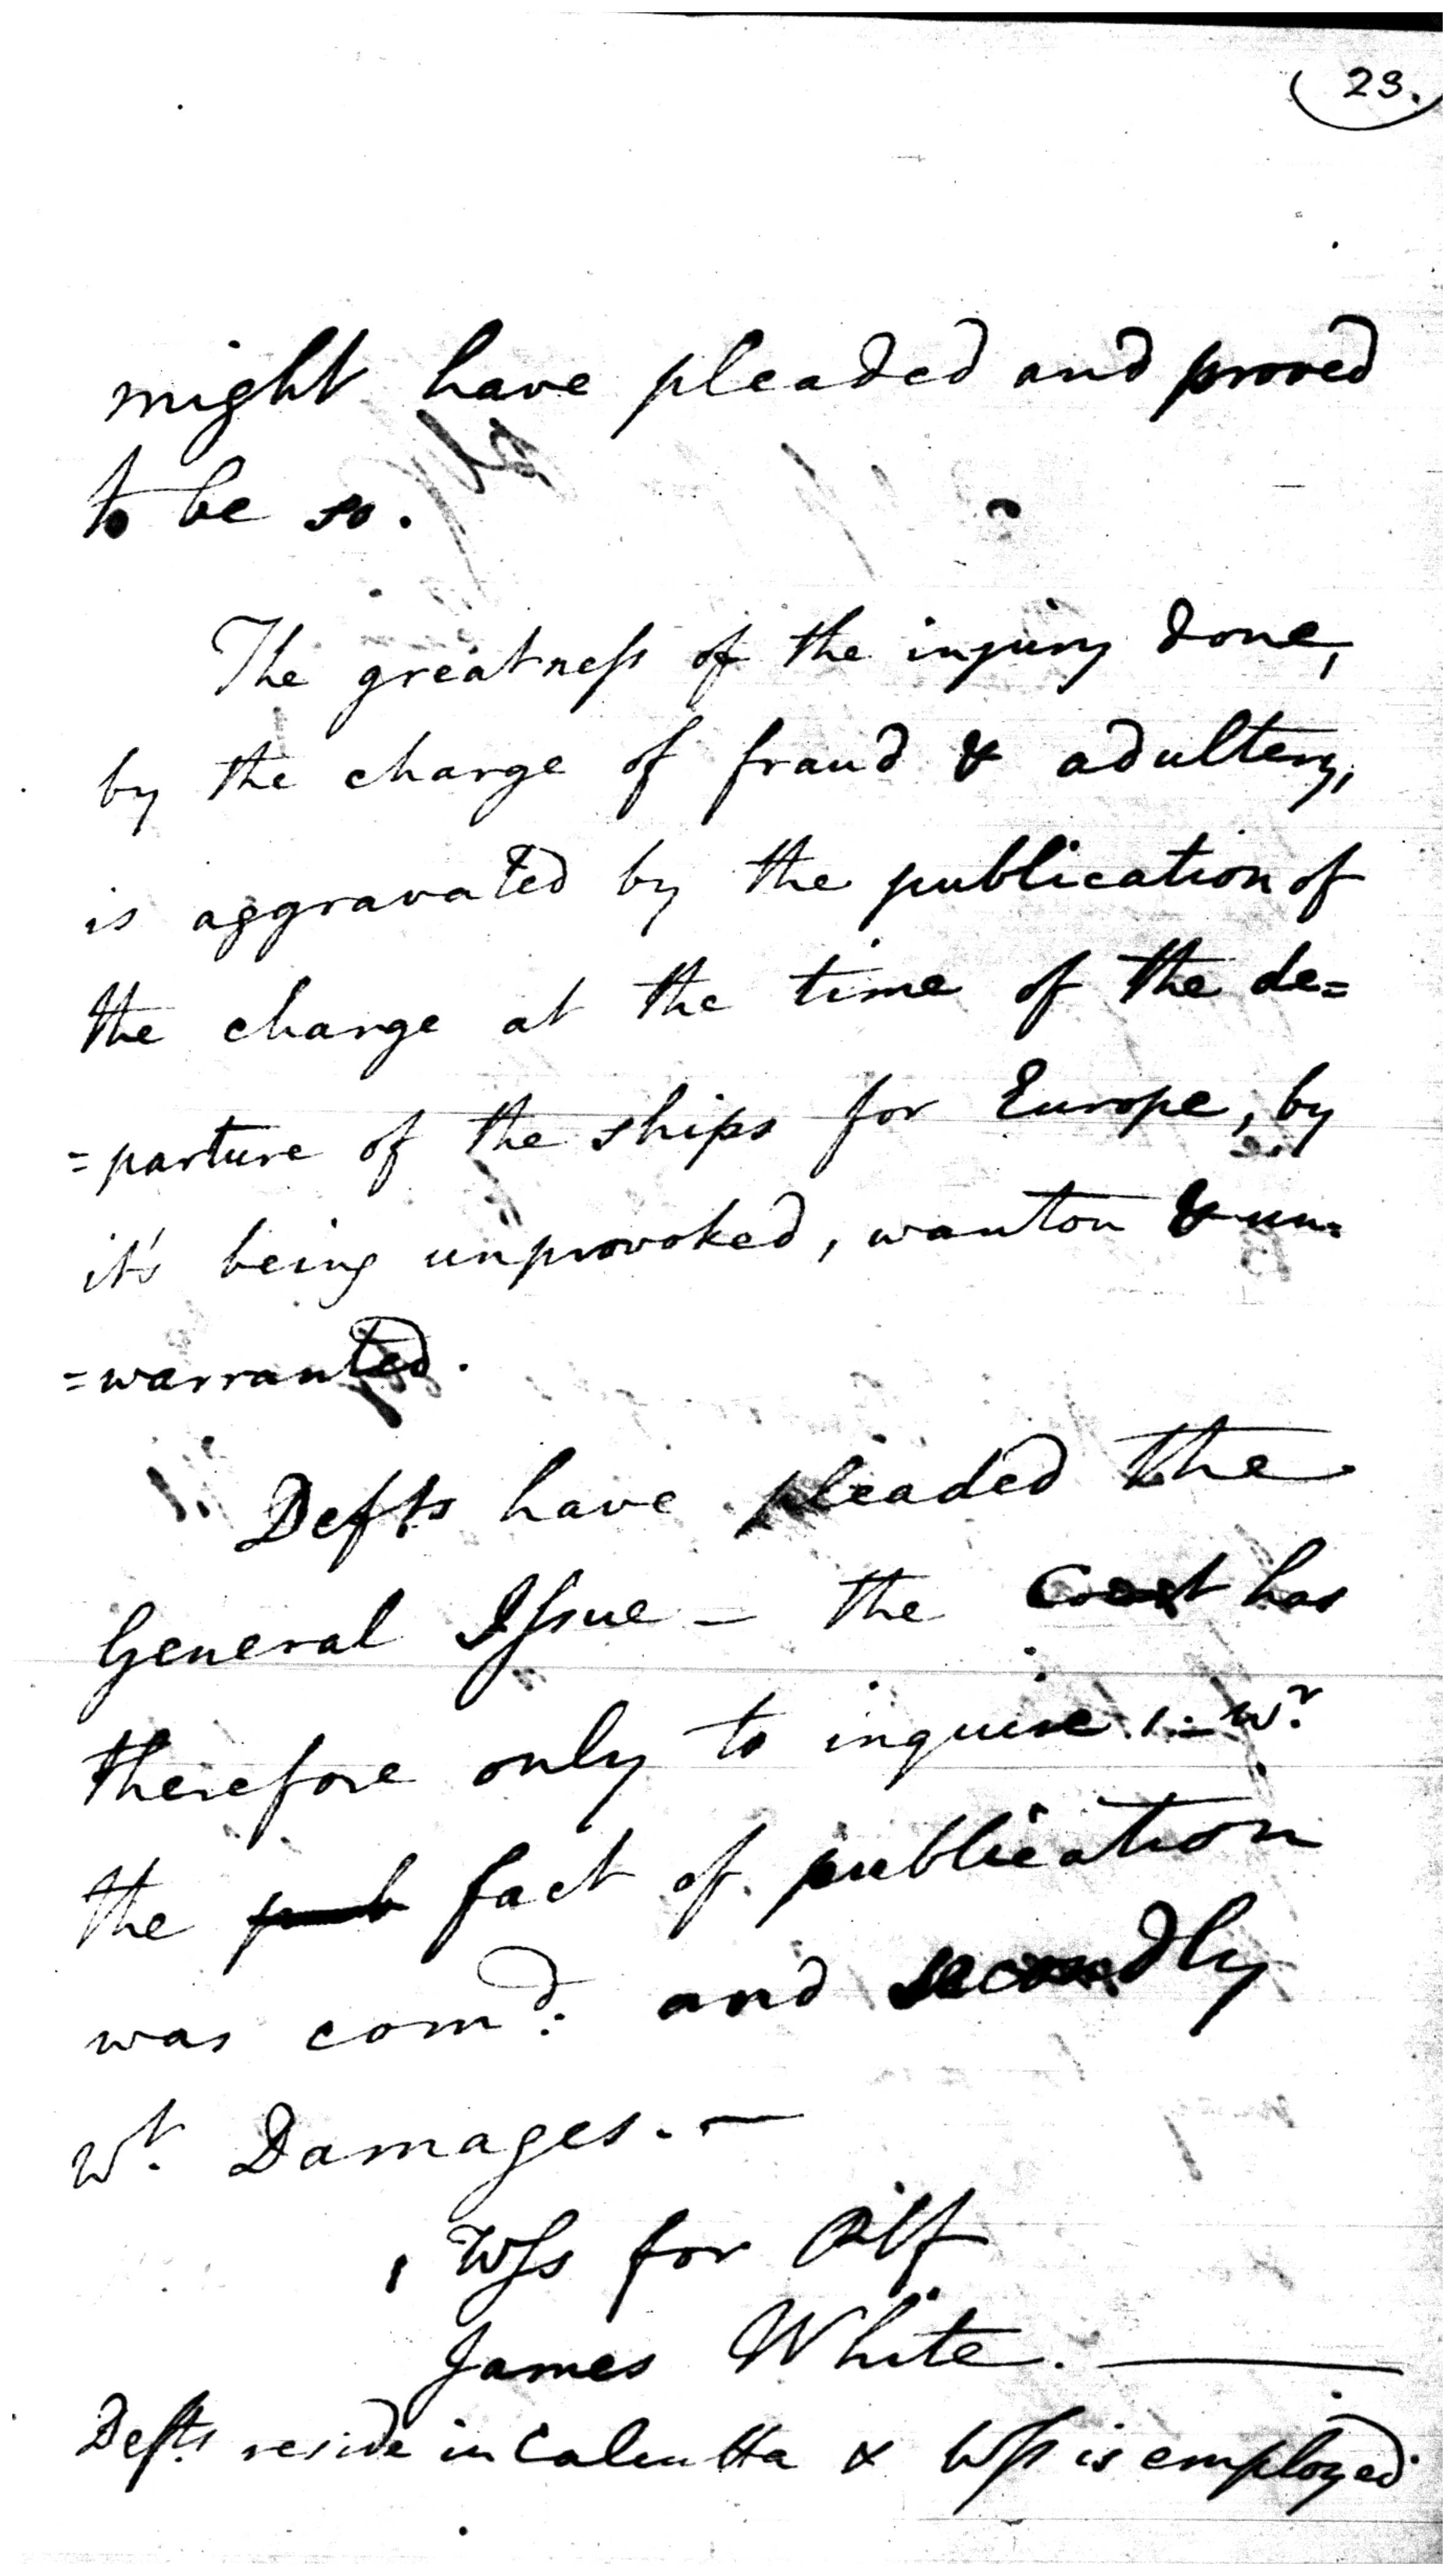 (23.)
might have pleaded and proved
to be so.
The greatness of the injury done,
by the charge of fraud & adultery,
is aggravated by the publication of
the charge at the time of the de=
=parture of the ships for Europe, by
it's being unprovoked, wanton & un=
=warranted.
Defts have pleaded the
General Issue - the Court has
therefore only to inquire 1. wr.
the fact of publication
was comd: and secondly
wt. Damages. -
1 Wss for Plf
James White.
Defts. reside in Calcutta & Wss is employed